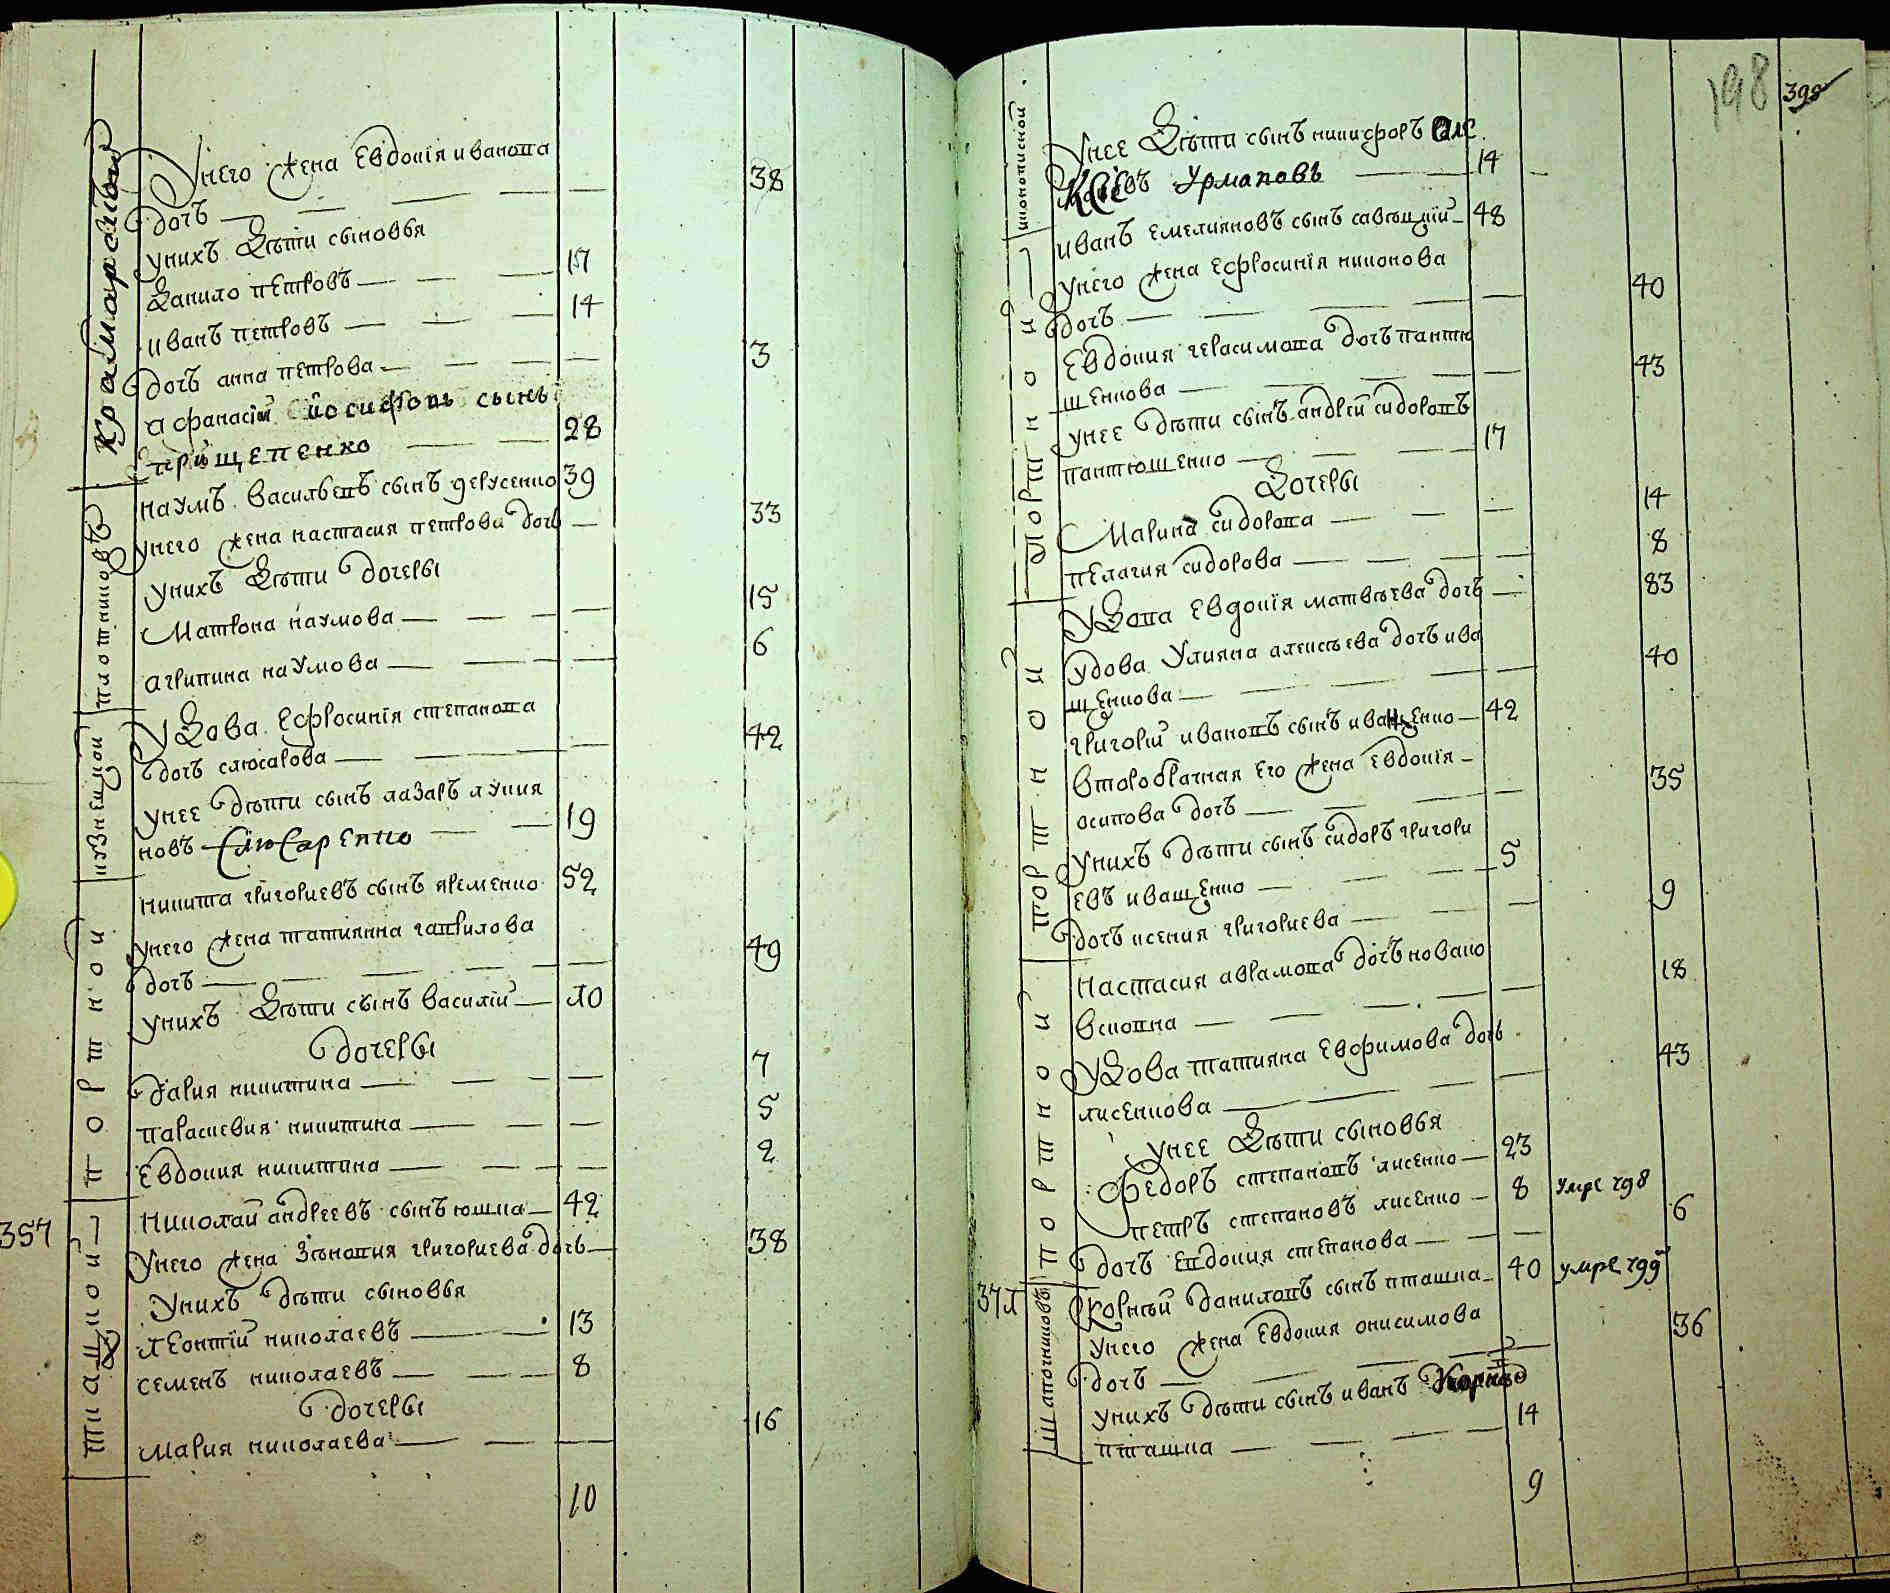 Крамарской
Унего жена Евдокія иванова
дочъ — 38
унихъ Дѣти сыновья
Данило петровъ — 17
иванъ петровъ — 14
дочъ анна петрова — 3
афанасій иосифовъ сынъ
прищепенко — 28
плотниковъ
наумъ васильевъ сынъ дерусенко 39
унего жена настасия петрова дочь — 33
унихъ Дѣти дочеры
Матрона наумова — 15
агрипина наумова — 6
кузнецкой
УДова Ефросинія степанова
дочъ слюсарова — 42
унее дѣти сынъ лазаръ лукия
новъ Слюсаренко — 19
портной
никита григориевъ сынъ яременко 52
унего жена татиянна гаврилова
дочъ — 49
унихъ Дѣти сынъ василій — 10
дочеры
дария никитина — 7
параскевия никитина — 5
Евдокия никитина — 2
357
ткацкой
Николай андреевъ сынъ юшка — 42
Унего жена Зѣновия григориева дочь — 38
Унихъ дѣти сыновья
леонтій николаевъ — 13
семенъ николаевъ — 8
дочеры
мария николаева — 16
10
198 398
иконописной
Унее Дѣти сынъ никифоръ Але
Ксѣевъ Урмановъ — 14
портной
иванъ емелияновъ сынъ савъцкій — 48
унего жена ефросинія никонова
дочъ — 40
Евдокия герасимова дочъ пантю
щенкова — 43
унее дѣти сынъ андрей сидоровъ
пантющенко — 17
Дочеры
Марина сидорова — 14
пелагия сидорова — 8
УДова Евдокія матвѣева дочъ — 83
портной
удова Улияна алексѣева дочъ ива
щенкова — 40
григорій ивановъ сынъ иващенко — 42
второбрачная его жена Евдокія
осипова дочъ — 35
Унихъ дѣти сынъ сидоръ григори
евъ иващенко — 5
дочъ ксения григориева — 9
портной
Настасия аврамова дочъ новако
всковна — 18
УДова татияна Евфимова дочь
лисенкова — 43
унее Дѣти сыновья
Федоръ степановъ лисенко — 23
петръ степановъ лисенко — 8 умре 798
дочъ Евдокия степанова — 6
371
шапочниковъ
Корнѣй даниловъ сынъ пташка — 40 умре 799
Унего жена Евдокия онисимова
дочъ — 36
унихъ дѣти сынъ иванъ
пташка — 14
9